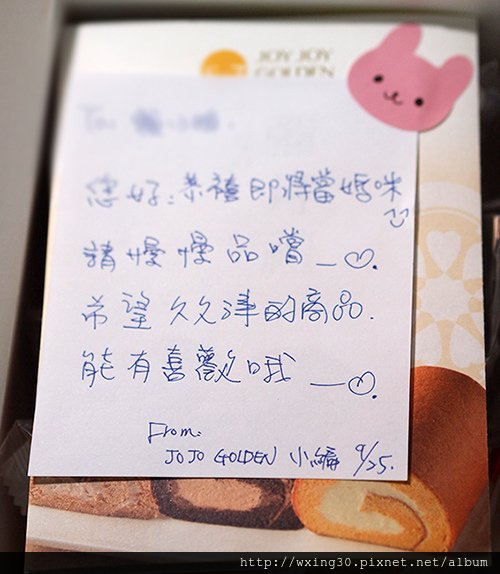 JOY JOY
GOLDEN
To:
您好:恭禧即將當媽咪
請慢慢品嚐_♡.
希望久久津的商品.
能有喜歡哦_♡.
From:
JOJO GOLDEN 小編 9/25.
http://wxing30.pixnet.net/album